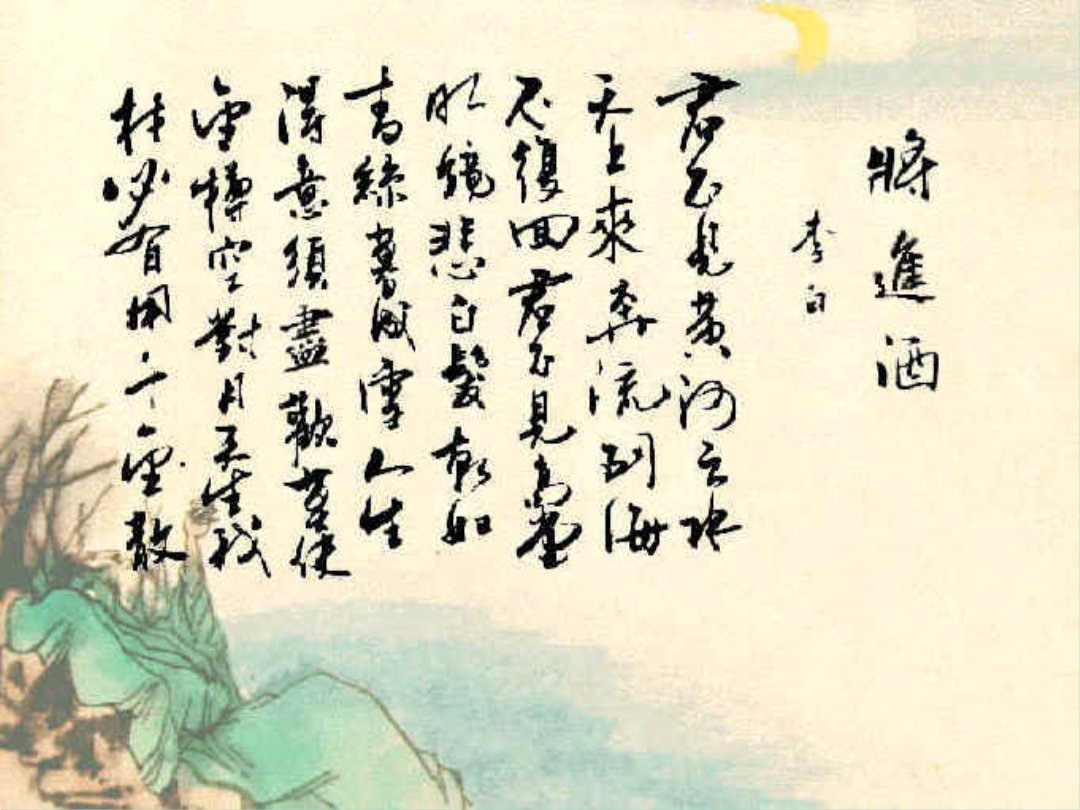 將進酒
李白
君不見黃河之水
天上來奔流到海
不復回君不見高堂
明鏡悲白髮朝如
青絲暮成雪人生
得意須盡歡莫使
金樽空對月天生我
材必有用千金散